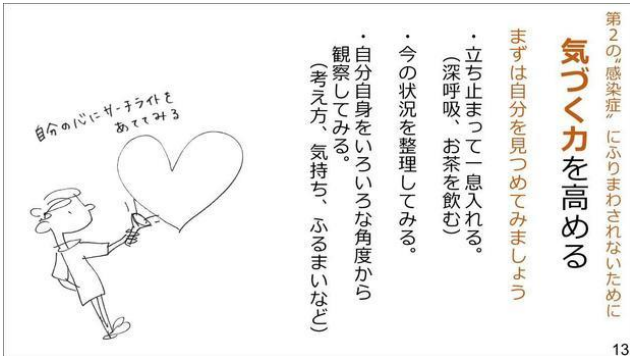 第2の“感染症” にふりまわされないために
気づく力を高める
まずは自分を見つめてみましょう
・立ち止まって一息入れる。
(深呼吸、お茶を飲む)
・今の状況を整理してみる。
・自分自身をいろいろな角度から
観察してみる。
(考え方、気持ち、ふるまいなど)
自分の心にサーチライトを
あててみる
13